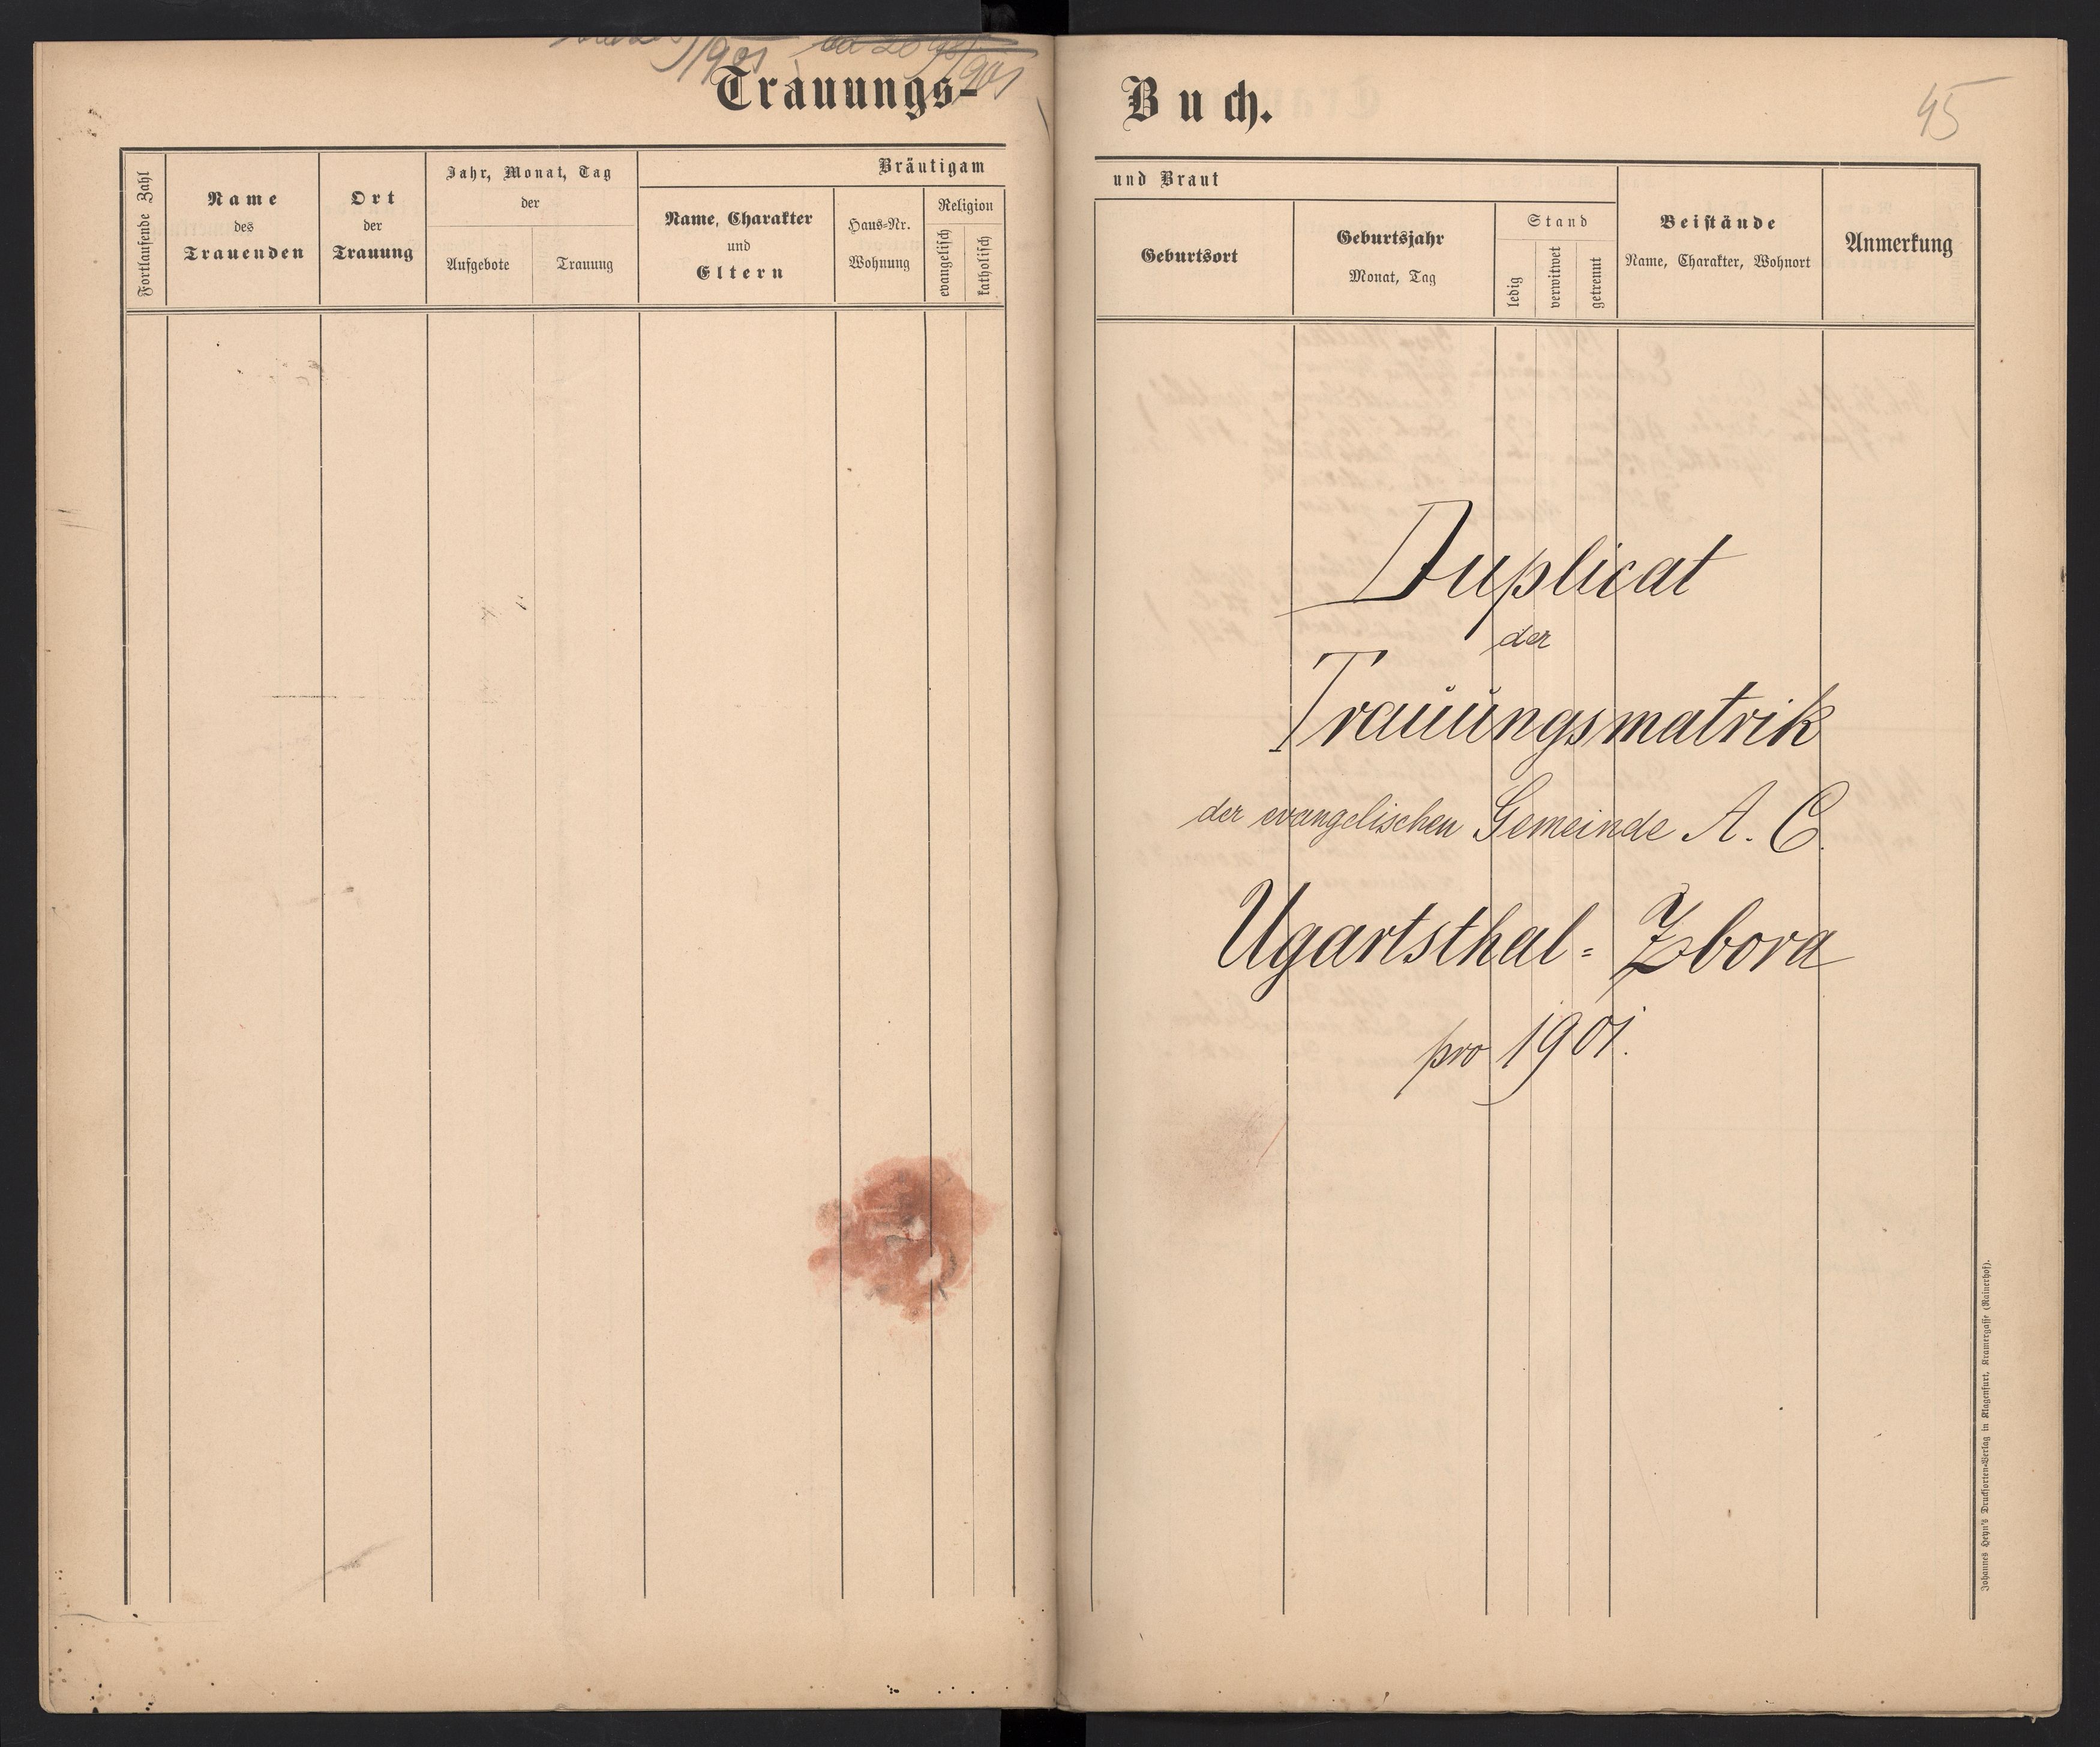 1901 1901
Trauungs-
Fortlaufende Zahl
Name
des
Trauenden
Ort
der
Trauung
Jahr, Monat, Tag
der
Aufgebote
Trauung
Bräutigam
Name, Charakter
und
Eltern
Haus-Nr.
Wohnung
Religion
evangelisch
katholisch
Buch.
45
und Braut
Geburtsort
Geburtsjahr
Monat, Tag
Stand
ledig
verwitwet
getrennt
Beistände
Name, Charakter, Wohnort
Anmerkung
Duplicat
der
Trauungsmatrik
der evangelischen Gemeinde A. C.
Ugartsthal = Zbora
pro 1901.
Johannes Heyn's Drucksorten-Verlag in Klagenfurt, Kramergasse (Rainerhof).